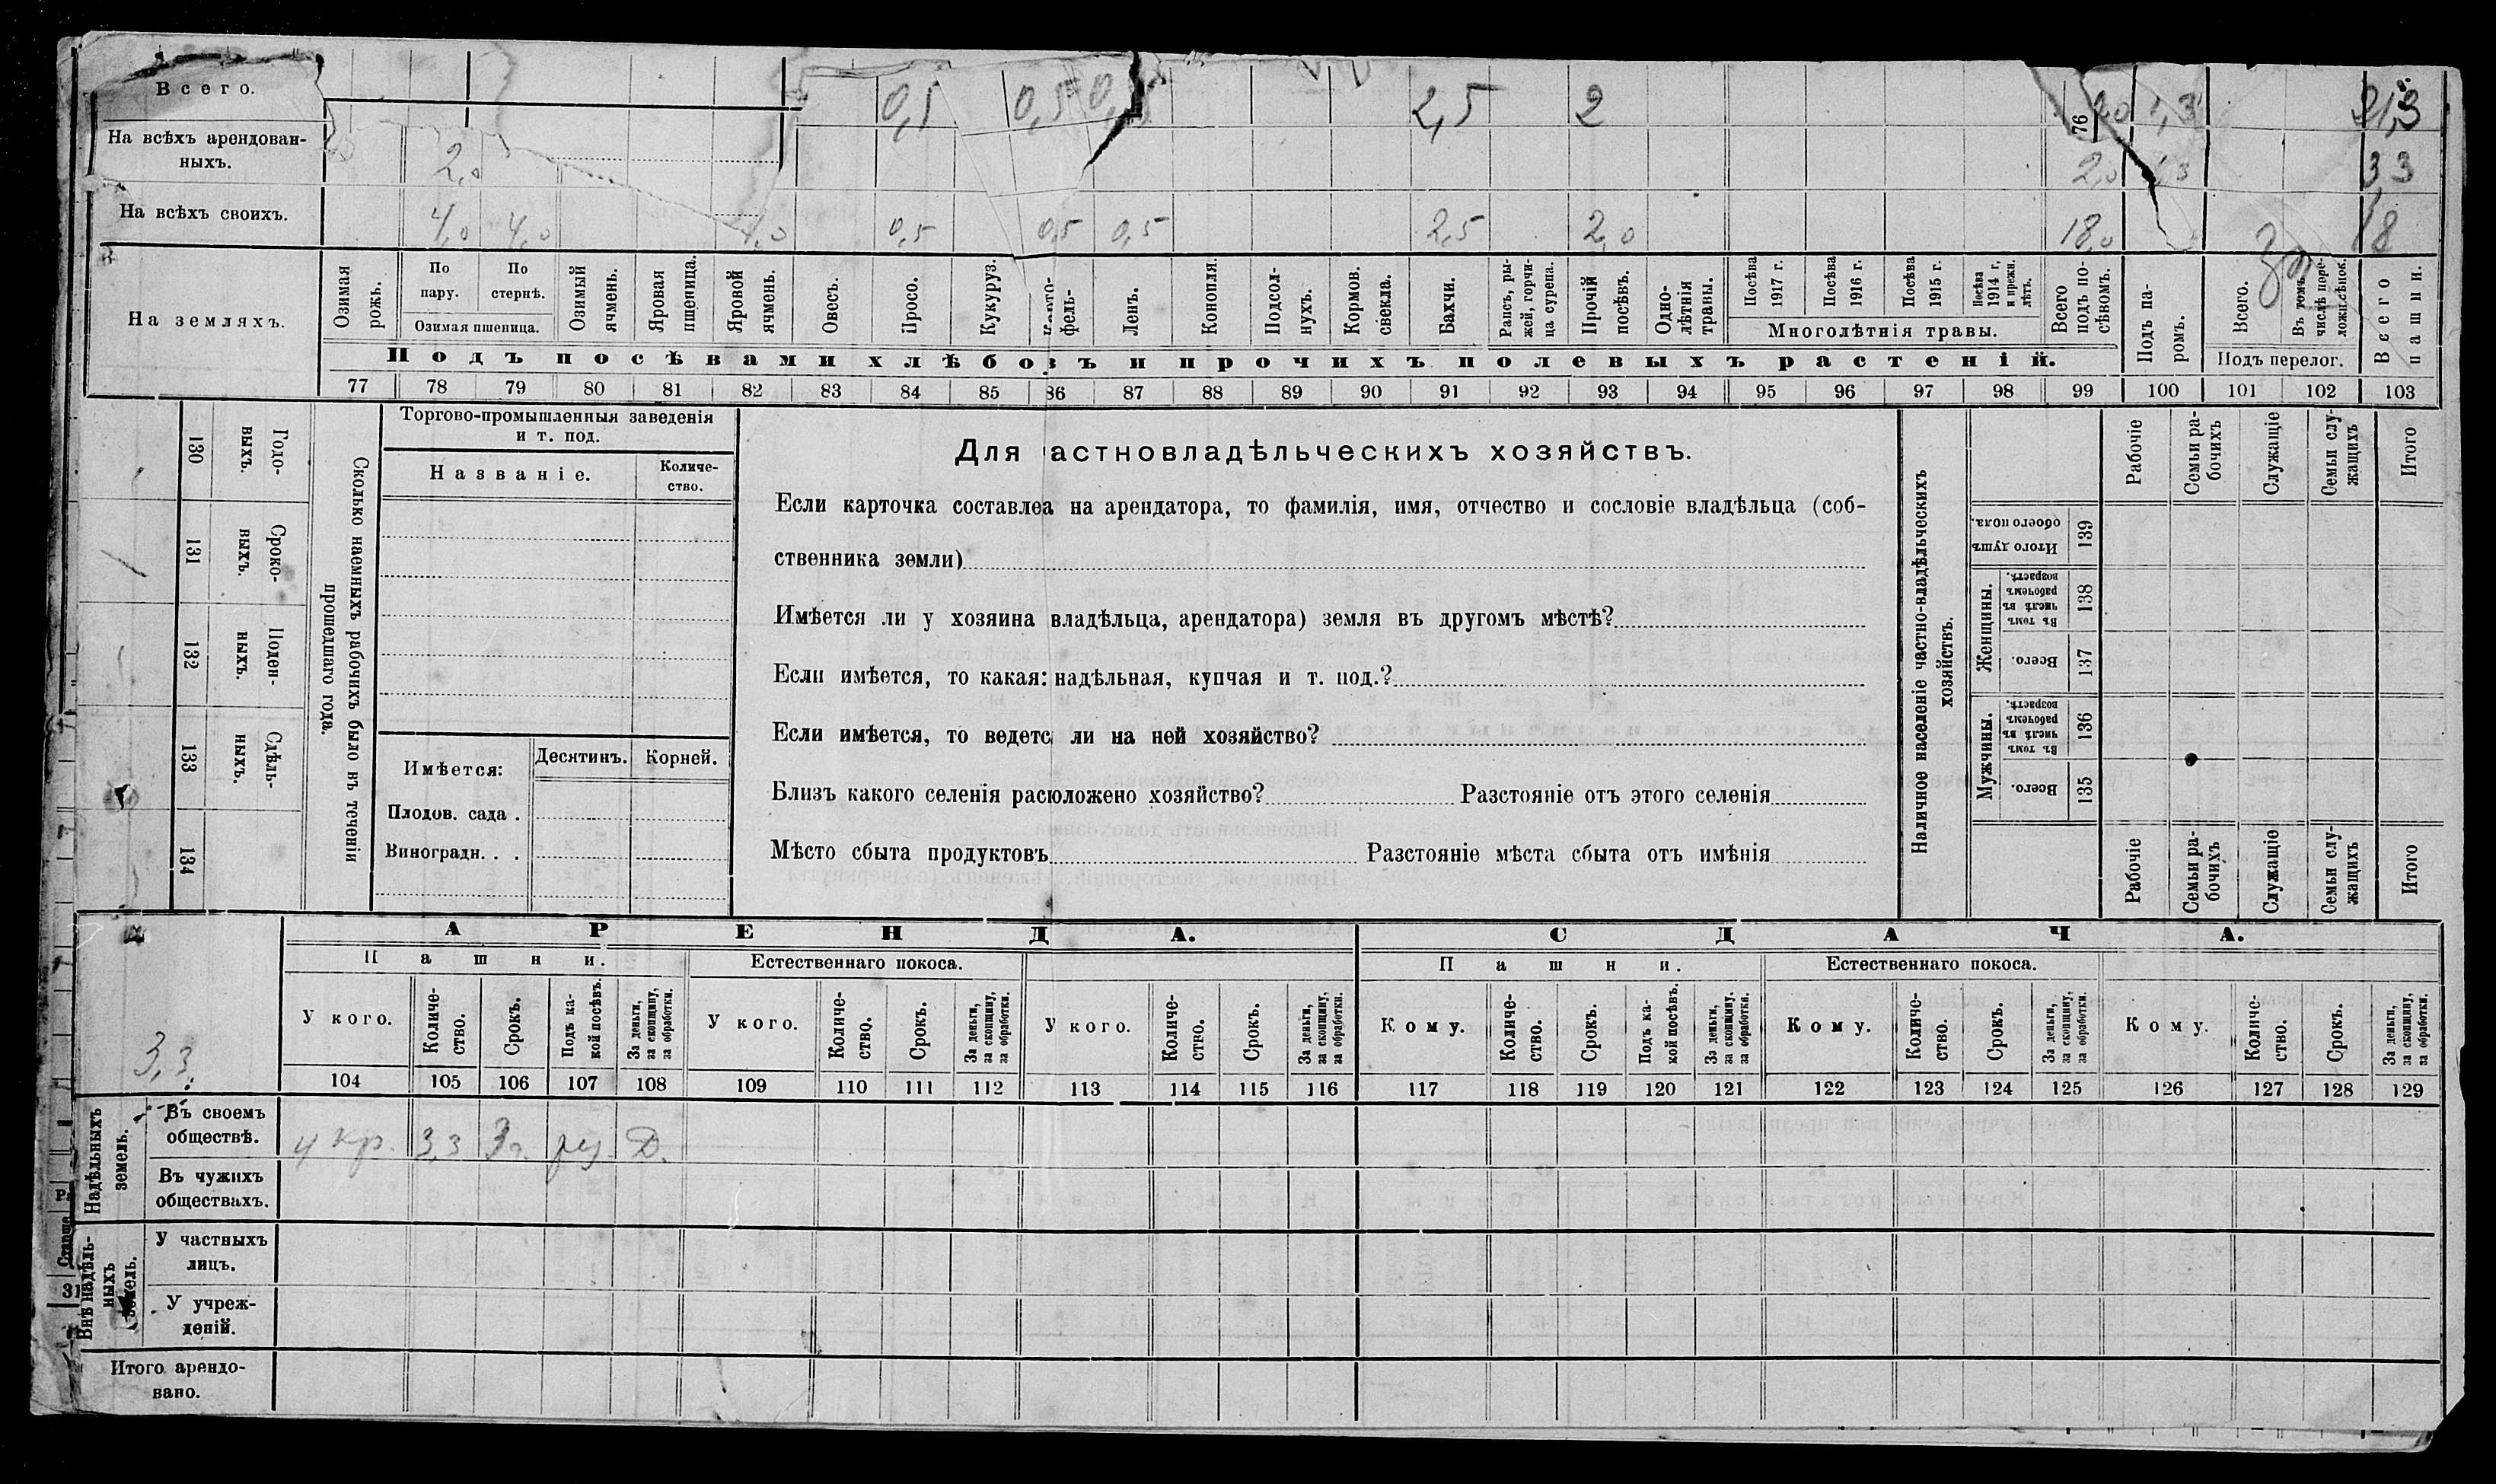 Всего. 0,5 0,5 2,5 2 76 20 1,3 21,3
На всѣхъ арендован-
ныхъ. 2,0 2,0 1,3 3,3
На всѣхъ своихъ. 4,0 4,0 4,0 0,5 0,5 0,5 2,5 2,0 18,0 18
На земляхъ.
Озимая рожь.
По пару.
По стернѣ.
Озимая пшеница.
Озимый ячмень.
Яровая пшеница.
Яровой ячмень.
Овесъ.
Просо.
Кукуруз.
фель-
Ленъ.
Конопля.
Подсол-
нухъ.
Кормов.
свекла.
Бахчи.
Рапсъ, ры-
жей, горчи-
ца сурепа.
Прочій
посѣвъ.
Одно-
лѣтнія
травы.
Посѣва
1917 г.
Посѣва
1916 г.
Посѣва
1915 г.
Посѣва
1914 г,
и прежн.
лѣтъ.
Многолѣтнія травы.
Всего
подъ по-
сѣвомъ.
Подъ па-
ромъ.
Всего.
Въ томъ
числѣ пере-
Подъ перелог.
Всего
пашни.
Подъ посѣвами хлѣбовъ и прочихъ полевыхъ растеній.
77 78 79 80 81 82 83 84 85 86 87 88 89 90 91 92 93 94 95 96 97 98 99 100 101 102 103
Сколько наемныхъ рабочихъ было въ теченіи
прошедшаго года.
Годо-
выхъ.
130
Сроко-
ныхъ.
131
Поден-
ныхъ.
132
Сдѣль-
ныхъ.
133
134
Торгово-промышленныя заведенія
и т. под.
Названіе.
Количе-
ство.
Имѣется:
Десятинъ. Корней.
Плодов. сада .
Виноградн. . .
Для астновладѣльческихъ хозяйствъ.
Если карточка составлеа на арендатора, то фамилія, имя, отчество и сословіе владѣльца (соб-
ственника земли)
Имѣется ли у хозяина владѣльца, арендатора) земля въ другомъ мѣстѣ?
Если имѣется, то какая: надѣльная, купчая и т. под.?
Если имѣется, то ведетс ли на ней хозяйство?
Близъ какого селенія расположено хозяйство? Разстояніе отъ этого селенія
Мѣсто сбыта продуктовъ Разстояніе мѣста сбыта отъ имѣнія
Наличное населеніе частно-владѣльческихъ
хозяйствъ.
Рабочіе
Семьи ра-
бочихъ
Служащіе
Семьи слу-
жащихъ
Итого
Итого душъ
обоего пола.
139
Женщины.
Въ томъ
числѣ въ
рабочемъ
возрастѣ.
138
Всего.
137
Мужчины.
Въ томъ
числѣ въ
рабочемъ
возрастѣ.
136
Всего.
135
Рабочіе
Семьи ра-
бочихъ
Служащіе
Семьи слу-
жащихъ
Итого
АРЕНДА. СДАЧА.
Пашни. Естественнаго покоса. Пашни. Естественнаго покоса.
3,3
У кого.
Количе-
ство.
Срокъ.
Подъ ка-
кой посѣвъ.
За деньги,
за скопщину,
за обработки.
У кого.
Количе-
ство.
Срокъ.
За деньги,
за скопщину,
за обработки.
У кого.
Количе-
ство.
Срокъ.
За деньги,
за скопщину,
за обработки.
Кому.
Количе-
ство.
Срокъ.
Подъ ка-
кой посѣвъ.
За деньги,
за скопщину.
за обработки.
Кому.
Количе-
ство.
Срокъ.
За деньги,
за скопщину,
за обработки.
Кому.
Количе-
ство.
Срокъ.
За деньги,
за скопщину,
за обработки.
104 105 106 107 108 109 110 111 112 113 114 115 116 117 118 119 120 121 122 123 124 125 126 127 128 129
Надѣльныхъ
земель.
Въ своемъ
обществѣ. у кр. 3,3 3 г. Д.
Въ чужихъ
обществахъ.
Внѣ надѣль-
ныхъ
земель.
У частныхъ
лицъ.
У учреж-
деній.
Итого арендо-
вано.
31